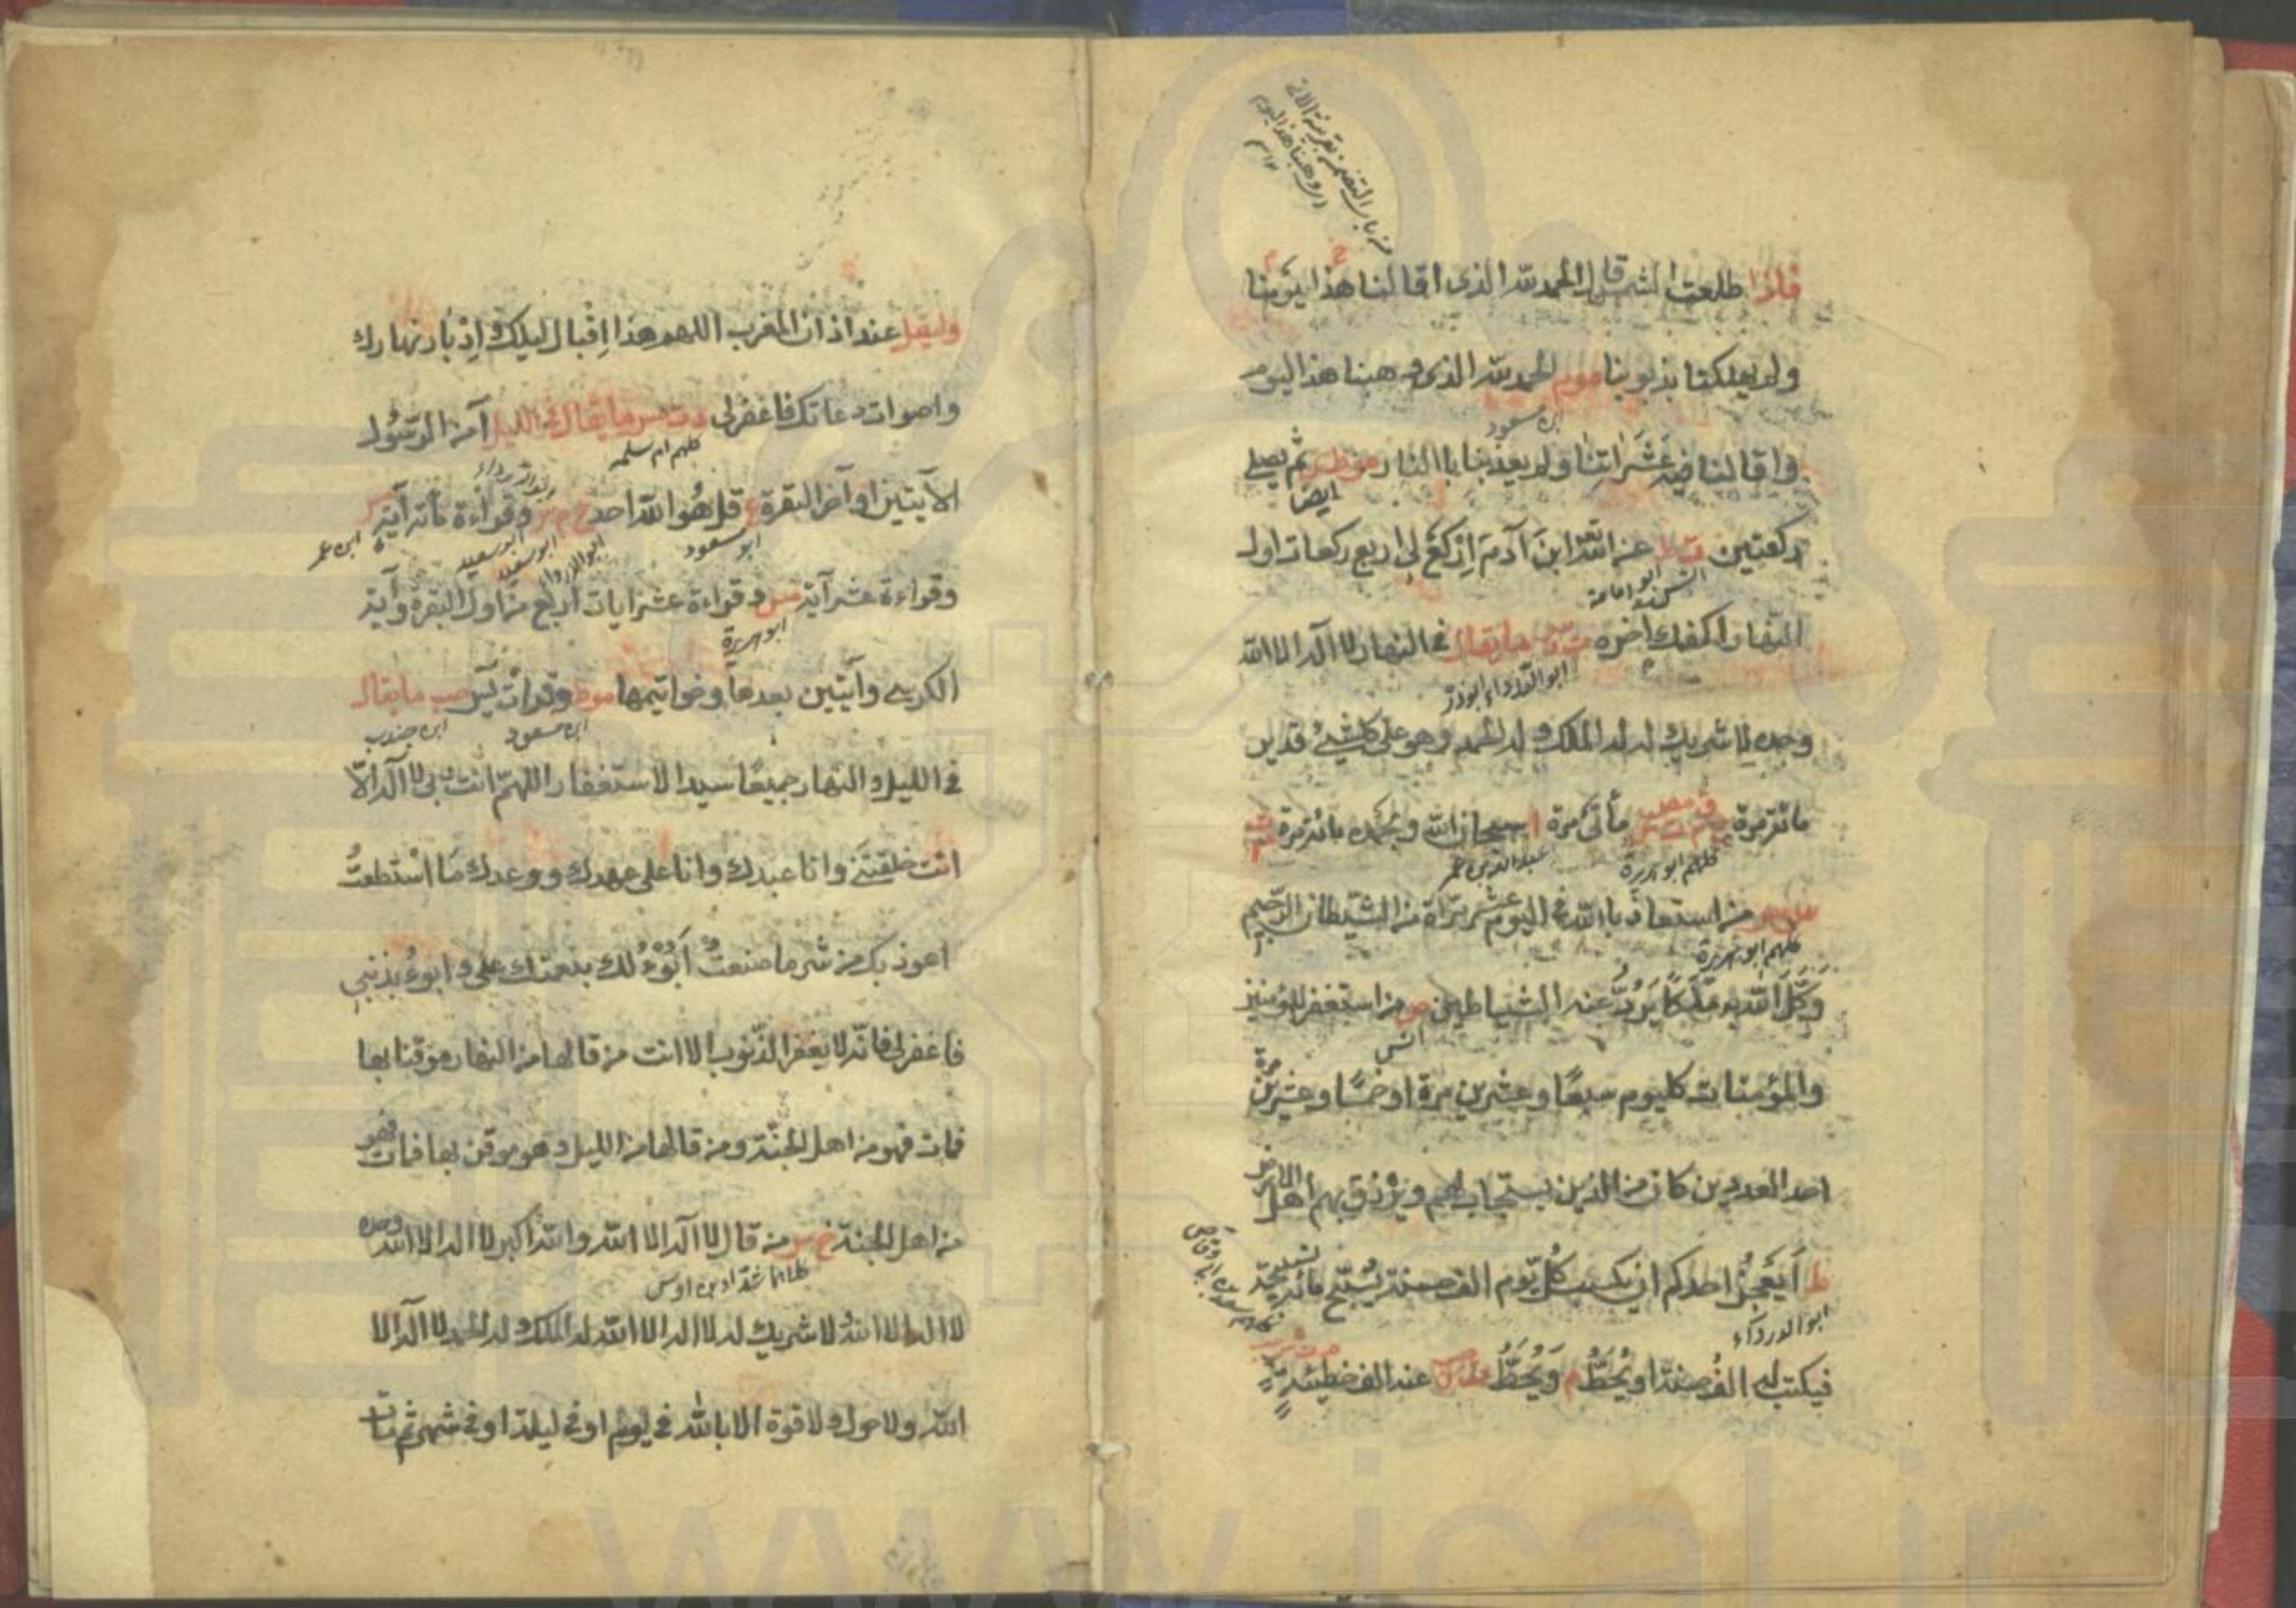 فاذا طلعت الشمس قال الحمد لله الذى اقالنا هذا يومنا
ولم يهلكنا بذنوبنا موم الحمد لله الذى وهبنا هذا اليوم
ابن مسعود
واقالنا فيه عَثَرَاتِنا ولم يعذبنا باالنار مو ط ثم يصلى
ايضا
ركعتين ت ط عن الله ابنَ آدمَ اِرْكَعْ لى اربع ركعات اول
ابو امامة
النهار اكفك اخره ت د س ما يقال فى النهار لا اله الا الله
ابو الدرداء ابوذر
وحده لا شريك له له الملك وله الحمد وهو على كلشئ قدير
مائة مرة خ م ت س ق مص مأتى مرة ا سبحان الله وبحمده مائة مرة
كلهم ابو هريرة
عبد الله بن عمر
من استعاذ باالله فى اليوم عشر مراة من الشيطان الرجيم
كلهم ابو هريرة
وَكَّلَ الله به مَلَكًا يَرُدُّ عنه الشياطين ص من استغفر للمؤمنين
انس
والمؤمنات كليوم سبعًا وعشرين مرة او خمسًا وعشرين مرة
احد العددين كان من الذين يستجاب لهم ويُرزق بهم اهل الارض
ط اَيَعجِزُ احدكم ان يكسب كُلّ يوم الف حسنة يُسَبّح مائة تسبيحة
ابو الدرداء
فيكتب له الفُ حسنة او يُحَطُّ م وَيُحَطُّ عنه الف خطيئة
وليقل عند اذان المغرب اللهم هذا اِقْبال ليلك واِدْبار نهارك
واصوات دعاتك فاغفرلى د ت مس ما يقال فى الليل آمن الرسُول
كلهم ام سلمه
الآيتين اواخر البقرة ع قل هُو الله احد خ م س وقراءة مائة آية
ابو مسعود
ابو الدرداء
ابو سعيد
ابن عمر
وقراءة عشر آية مس وقراءة عشر ايات اربع من اول البقرة وآية
ابو هريرة
الكرسى وآيتين بعدها وخواتيمها موط وقراءت يس حب ما يقال
ابن مسعود
ابن جندب
فى الليل والنهار جميعًا سيد الاستغفار اللهمّ انت ربى لا اله الّا
انت خلقتنى وانا عبدك وانا على عهدك ووعدك مَا اسْتطعتُ
اعوذ بك من شر ما صنعتُ اَبُوْءُ لك بنعمتك على وابوءُ بذنبى
فاغفرلى فانّه لا يغفر الذّنوب الا انت من قالها من النهار موقنا بها
فمات فهو من اهل الجنّة ومن قالها من الليل وهو موقن بها فمات فهو
من اهل الجنة خ س من قال لا اله الا الله والله اكبر لا اله الا الله وحده
شداد بن اوس
لا اله الا الله لا شريك له لا اله الا الله له الملك وله الحمد لا اله الا
الله ولا حول ولا قوة الا بالله فى يوم او فى ليلة او فى شهر ثم مات
www.ical.ir